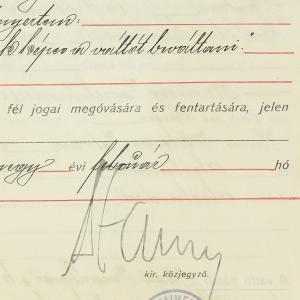 nyertem:
k képes a váltót beváltani."
fél jogai megóvására és fentartására, jelen
negy évi február hó
kir. közjegyző.